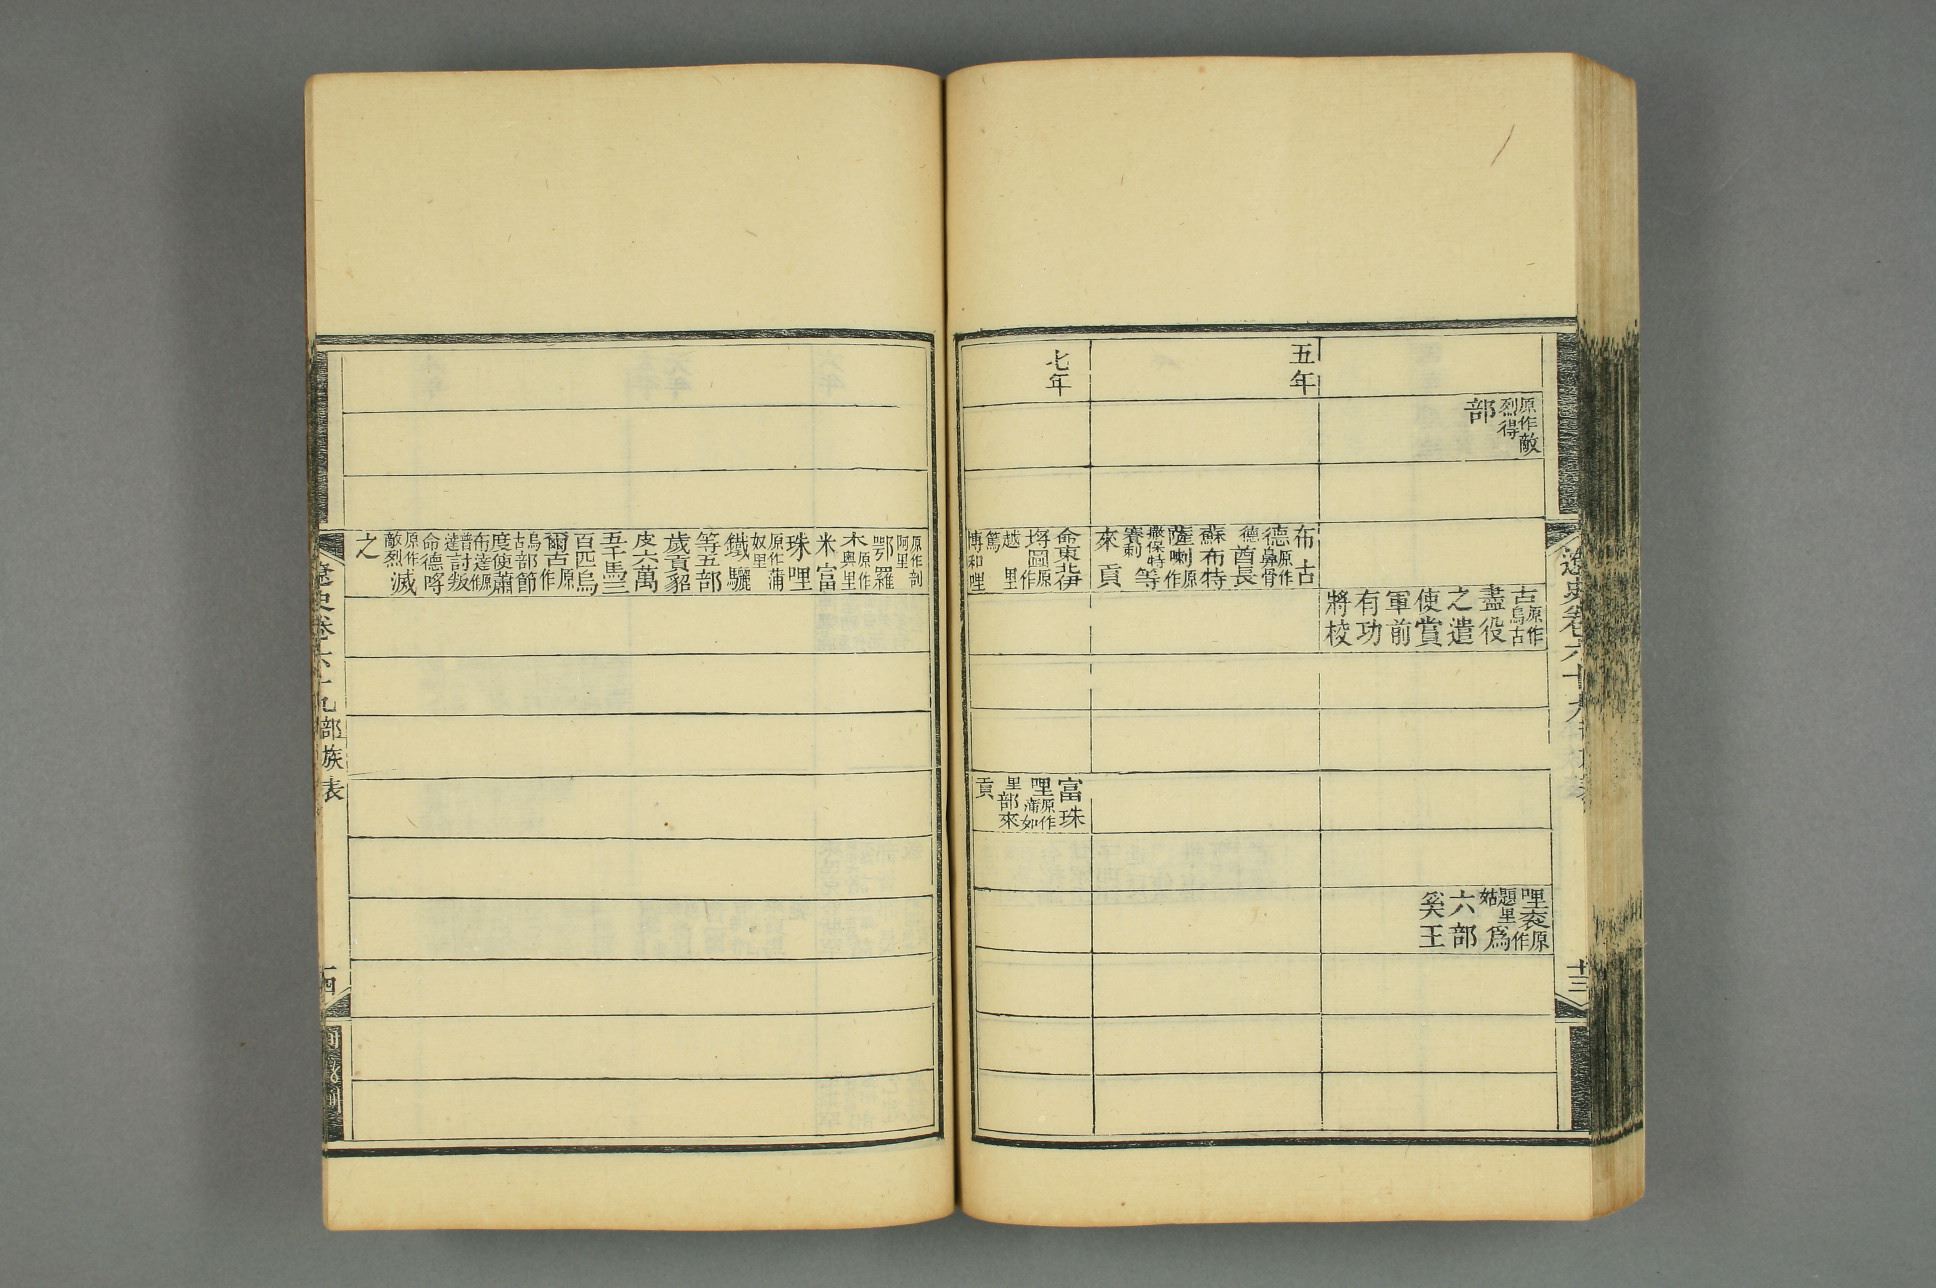 遼史卷六十九
十三
原作敵
烈得
部
古原作烏古
盡役
之遣
使賞
軍前
有功
將校
哩袞原作
題里
姑爲
六部
奚王
五年
布古
德原作鼻骨
德酋長
蘇布特
薩喇原作
撒保特
賽剌等
來貢
七年
命東北伊
圖原作
越里
篤
博和哩
富珠
哩原作蒲如
里部來
貢
原作剖
阿里
鄂羅
木原作奧里
米富
珠哩
原作蒲
奴里
鐵驪
等五部
歲貢貂
皮六萬
五千馬三
百匹烏
爾古原作
烏古部節
度使蕭
布達原作
普達討叛
命德哷
原作敵烈滅
之
遼史卷六十九
部族表
十四